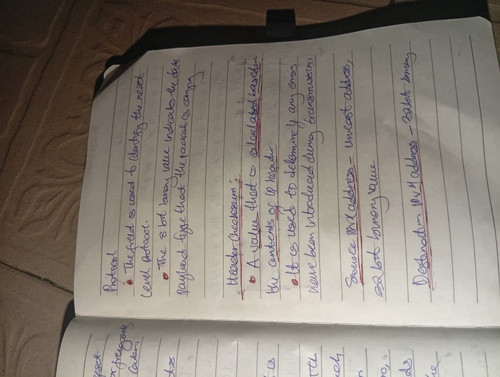 Protocol
• The field is used to identify the next
level protocol.
• The 8 bit binary value indicates the data
payload type that the packet is carrying
Header checksum:
• A value that is calculated based on
the contents of IP header
• It is used to determine if any errors
have been introduced during transmission.
Source IPv4 address - unicast address,
32 bit binary value
Destination IPv4 address - 32 bit binary